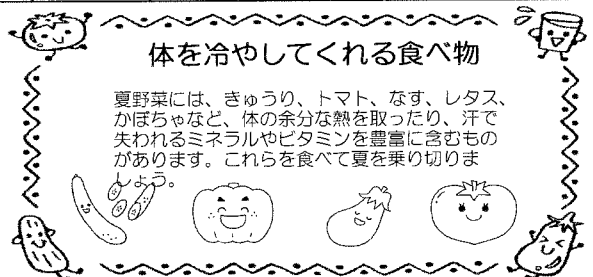 体を冷やしてくれる食べ物
夏野菜には、きゅうり、トマト、なす、レタス、
かぼちゃなど、体の余分な熱を取ったり、汗で
失われるミネラルやビタミンを豊富に含むもの
があります。これらを食べて夏を乗り切りま
しょう。